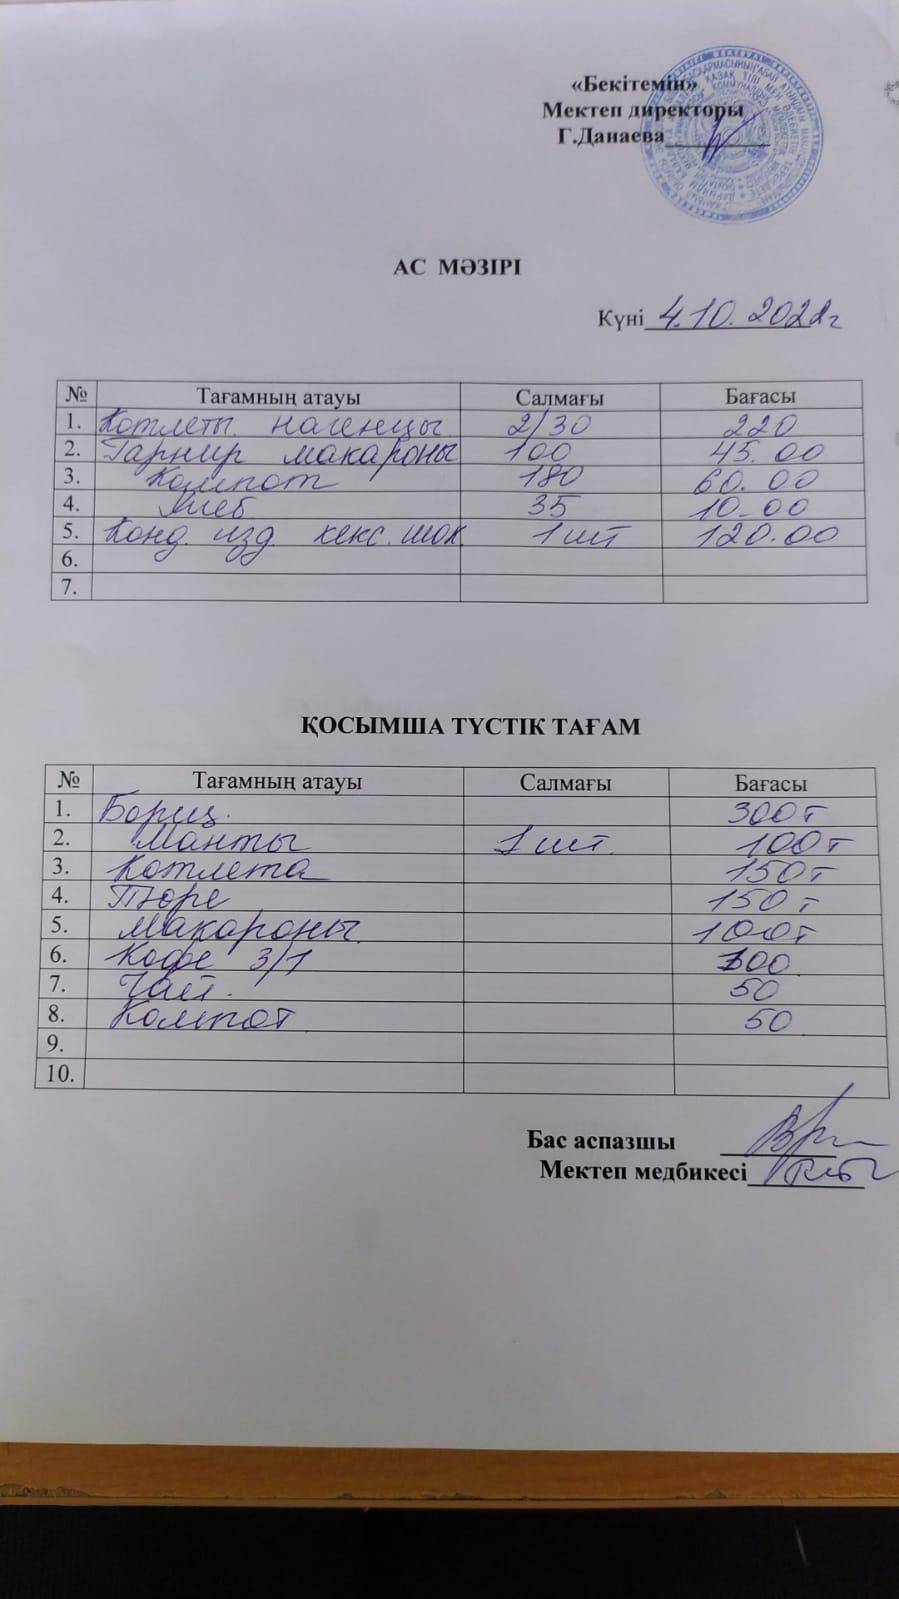 «Бекітемін»
Мектеп директоры
Г.Данаева
АС МӘЗІРІ
Күні 4.10.2022г
№ Тағамның атауы Салмағы Бағасы
1. Котлеты нагенцы 2/30 220
2. Гарнир макароны 100 45.00
3. Компот 180 60.00
4. Хлеб 35 10-00
5. Конд. изд. кекс. шок. 1 шт 120.00
6.
7.
ҚОСЫМША ТҮСТІК ТАҒАМ
№ Тағамның атауы Салмағы Бағасы
1. Борщ. 300т
2. Манты 1 шт. 100т
3. Котлета 150т
4. Пюре 150т
5. Макароны. 100т
6. Кофе 3/1 100
7. Чай. 50
8. Компот 50
9.
10.
Бас аспазшы
Мектеп медбикесі